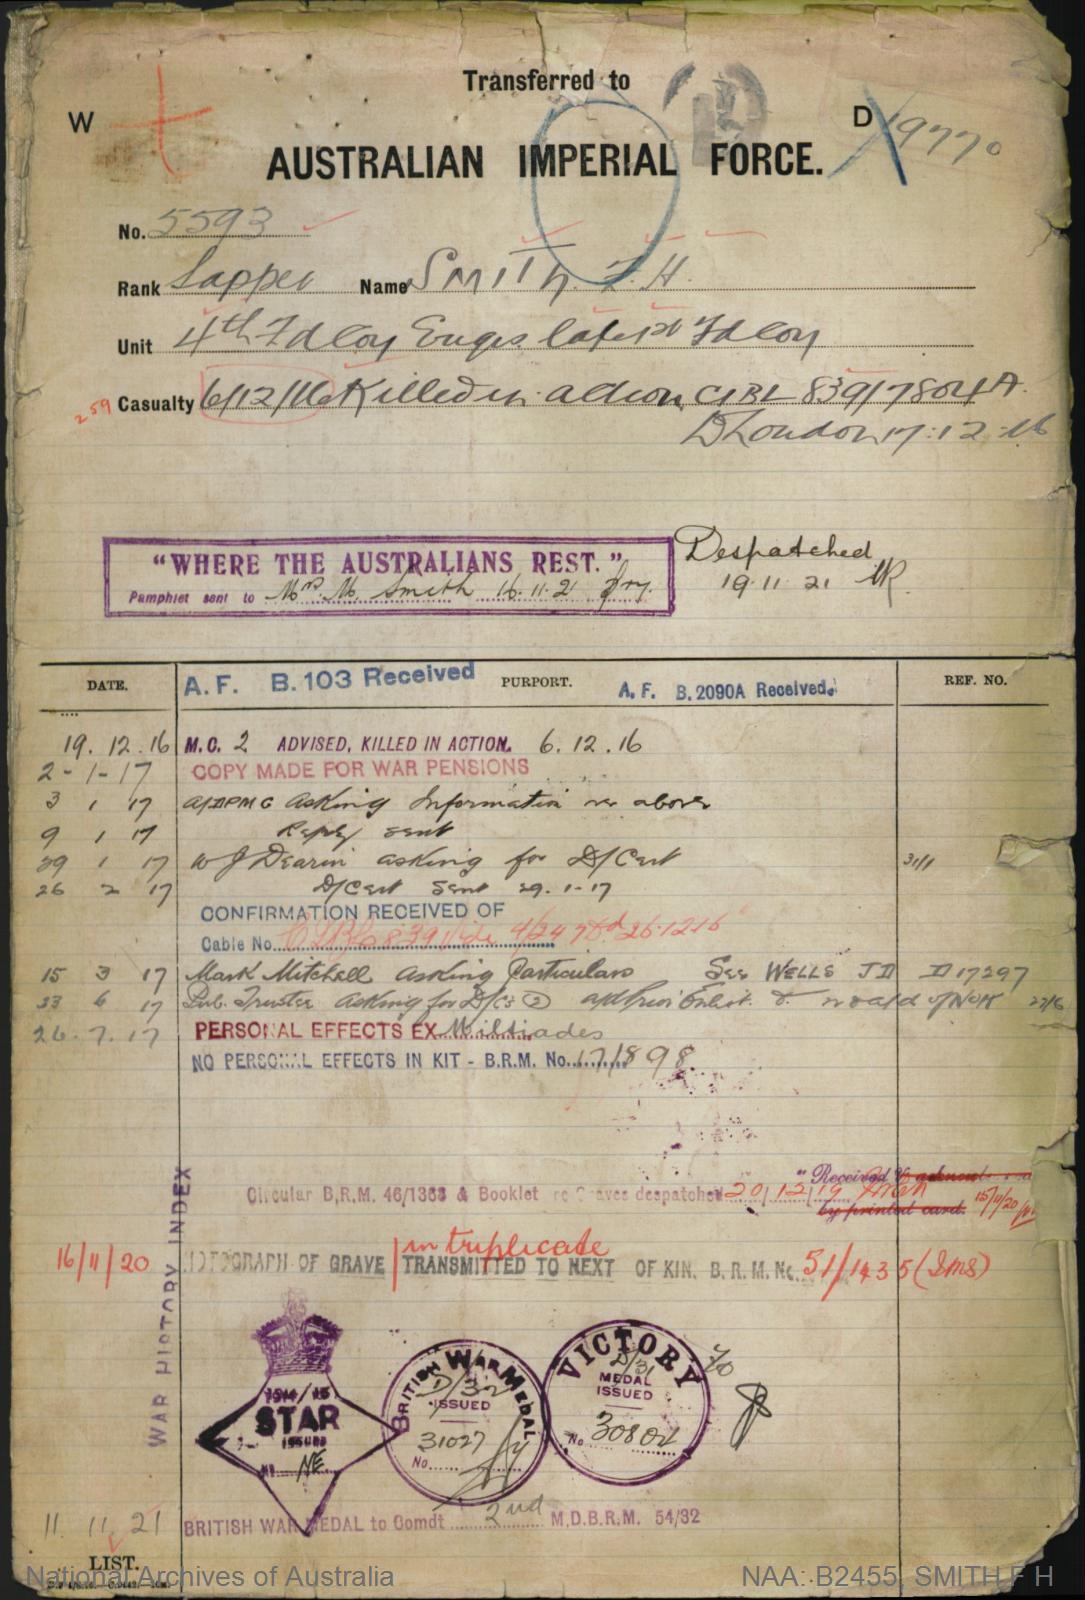 Transferred to
W D 19770
AUSTRALIAN IMPERIAL FORCE.
No. 5593
Rank Sapper Name SMITH. F. H.
Unit 4th Fd Coy Engrs late 1st Fd Coy
259 Casualty 6/12/16 Killed in action CIBL 839/7804A
D London 17.12.16
"WHERE THE AUSTRALIANS REST."
Pamphlet sent to Mrs. M. Smith 16.11.21
Despatched
19.11.21
DATE. A. F. B. 103 Received PURPORT. A. F. B. 2090A Received. REF. NO.
19. 12. 16 M.C. 2 ADVISED, KILLED IN ACTION. 6. 12. 16
2-1-17 COPY MADE FOR WAR PENSIONS
3 1 17 A/DPMG Asking Information re above
9 1 17 Reply sent
29 1 17 W J Dearin asking for D/Cert 31/1
26 2 17 D/Cert Sent 29.1.17
CONFIRMATION RECEIVED OF
Cable No.
15 3 17 Mark Mitchell asking Particulars See WELLS J D D 17297
23 6 17 Pub. Trustee asking for D/Cs (2)
26.7.17 PERSONAL EFFECTS EX Miltiades
NO PERSONAL EFFECTS IN KIT - B.R.M. No. 171898
"Received & acknow
Circular B.R.M. 46/1368 & Booklet re Graves despatched 20/12/19
by printed card. 15/11/20
16/11/20 PHOTOGRAPH OF GRAVE in triplicate TRANSMITTED TO NEXT OF KIN. B. R. M. No. 51/1435 (3ms)
WAR HISTORY INDEX
1914/15
STAR
ISSUED
No. NE
BRITISH WAR MEDAL
D/32
ISSUED
31027
No.
VICTORY
D/31
MEDAL
ISSUED
No. 30804
11. 11. 21 BRITISH WAR MEDAL to Comdt 2nd M.D.B.R.M. 54/32
LIST.
National Archives of Australia NAA: B2455, SMITH F H